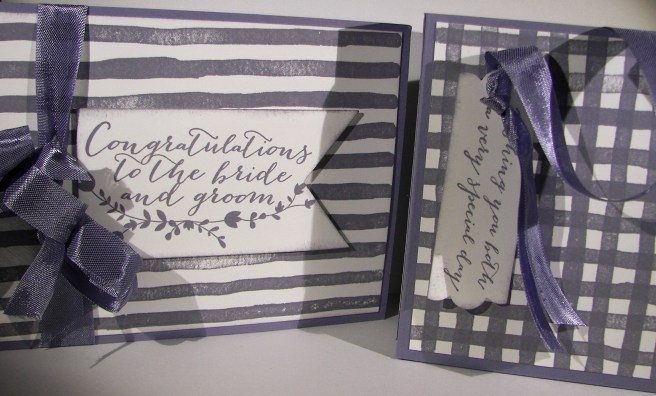 Congratulations
to the bride
and groom
you both
very special day